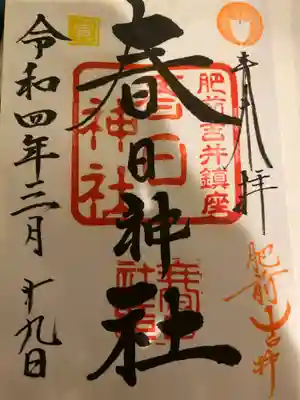 奉拝
肥前吉井
肥前吉井鎮座
春日神社
春日神社
令和四年三月廿九日